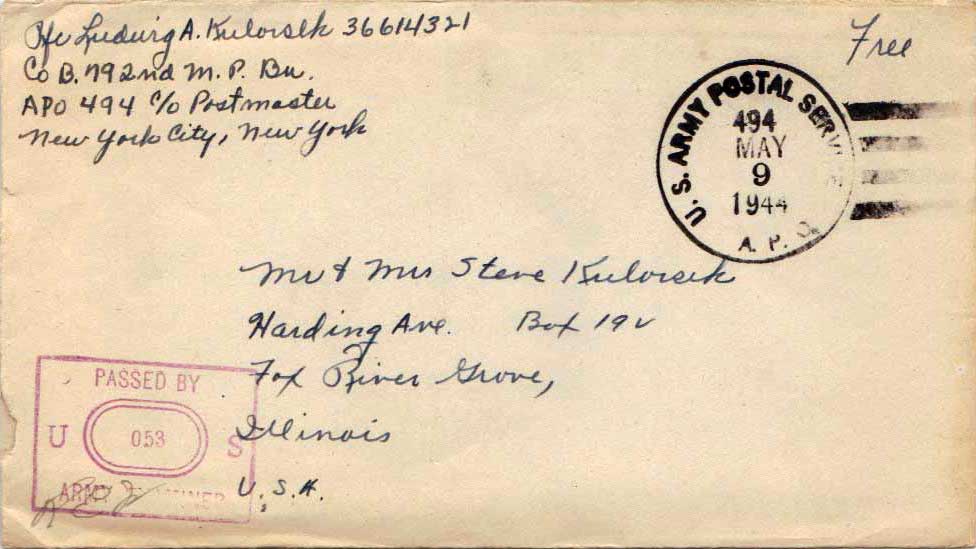 Pfc Ludwig A. Kulovsek 36614321
Co B. 792nd M. P. Bn.
APO 494 c/o Postmaster
New York City, New York
Free
U. S. ARMY POSTAL SERVICE
494
MAY
9
1944
A. P. O.
Mr & Mrs Steve Kulovsek
Harding Ave. Box 192
Fox River Grove,
Illinois
U. S. A.
PASSED BY
U 053 S
ARMY EXAMINER